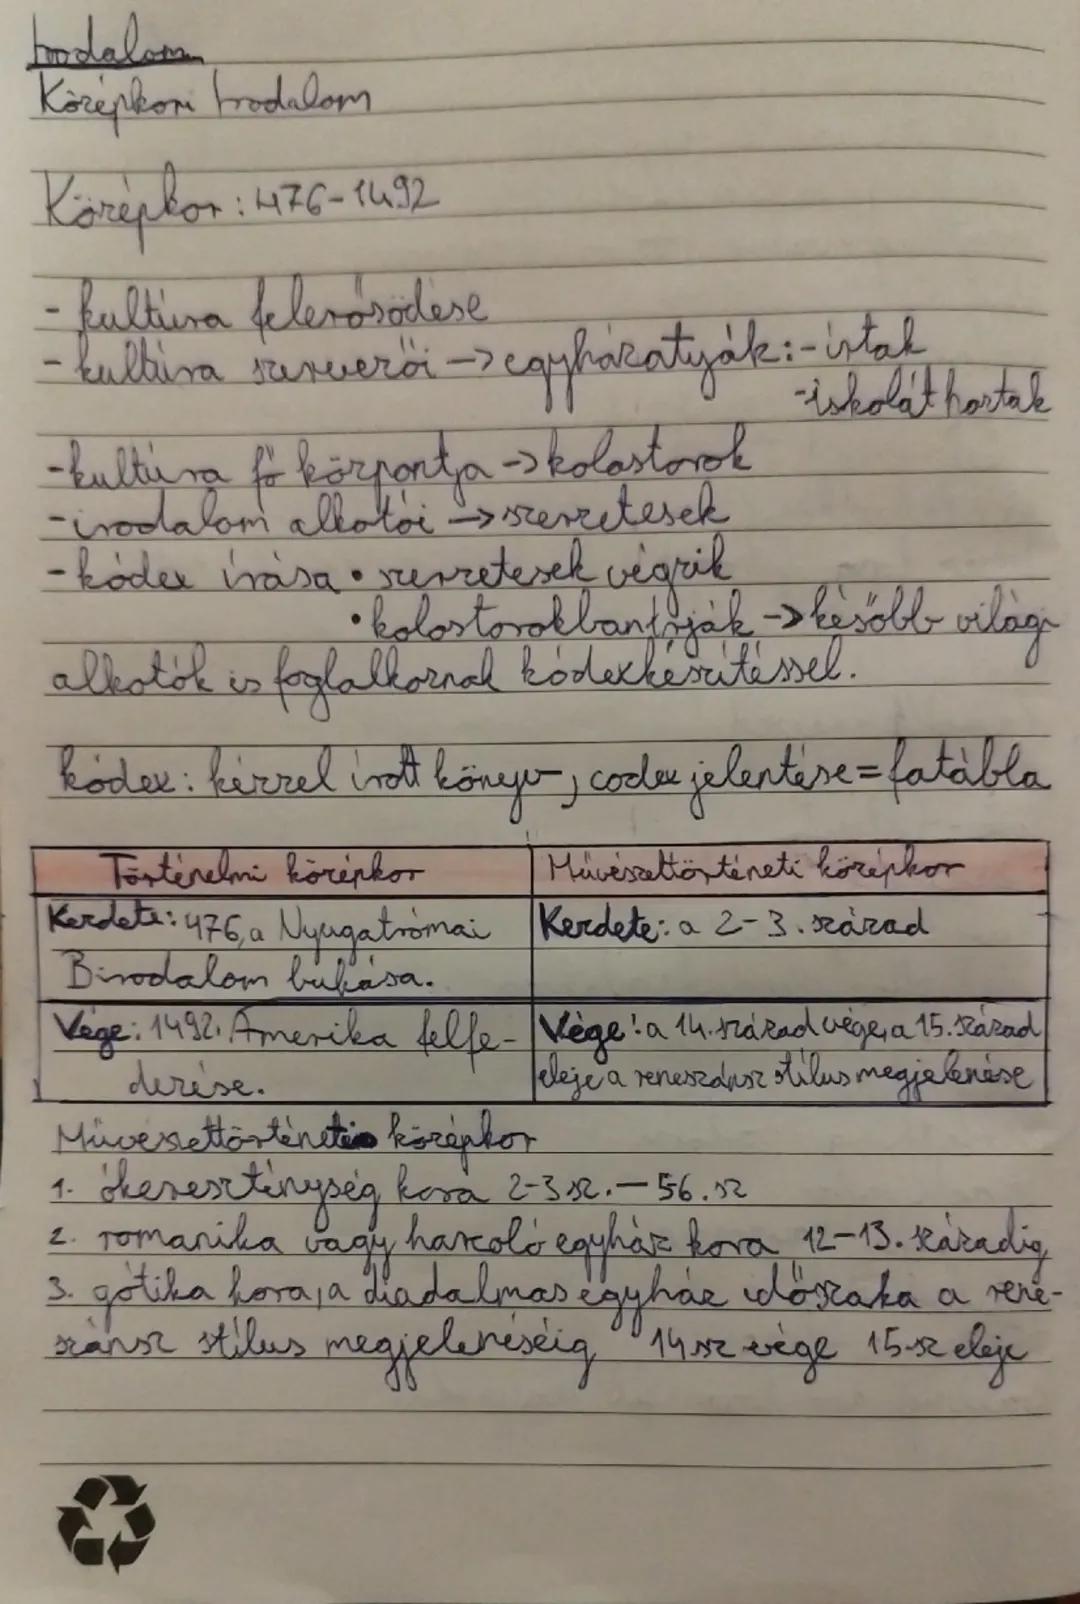 Irodalom
Középkori Irodalom
Középkor: 476-1492
- kultúra felerősödése
- kultúra szervezői -> egyházatyák: - írtak
- iskolát hoztak
- kultúra fő központja -> kolostorok
- irodalom alkotói -> szerzetesek
- kódex írása • szerzetesek végzik
• kolostorokban írják -> később világi
alkotók is foglalkoznak kódexkészítéssel.
kódex: kézzel írott könyv, codex jelentése = fatábla
Történelmi középkor
Művészettörténeti középkor
Kezdete: 476, a Nyugatrómai
Birodalom bukása.
Kezdete: a 2-3. század
Vége: 1492. Amerika felfe-
dezése.
Vége: a 14. század vége, a 15. század
eleje a reneszánsz stílus megjelenése
Művészettörténeti középkor
1. ókereszténység kora 2-3 sz. - 56. sz
2. romanika vagy harcoló egyház kora 12-13. századig
3. gótika kora, a diadalmas egyház időszaka a rene-
szánsz stílus megjelenéséig 14 sz vége 15-sz eleje